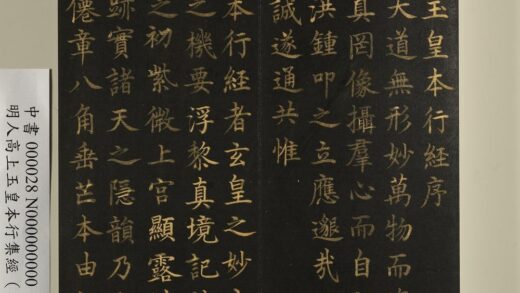 玉皇本行經序
大道無形妙萬物而
真罔像攝羣心而自
洪鍾叩之立應邈哉
誠遂通共惟
本行經者玄皇之妙
之機要浮黎真境記
之初紫微上宮顯露
跡實諸天之隱韻乃
僊章八角垂芒本由
中書 000028 N000000000
明人高上玉皇本行集經（